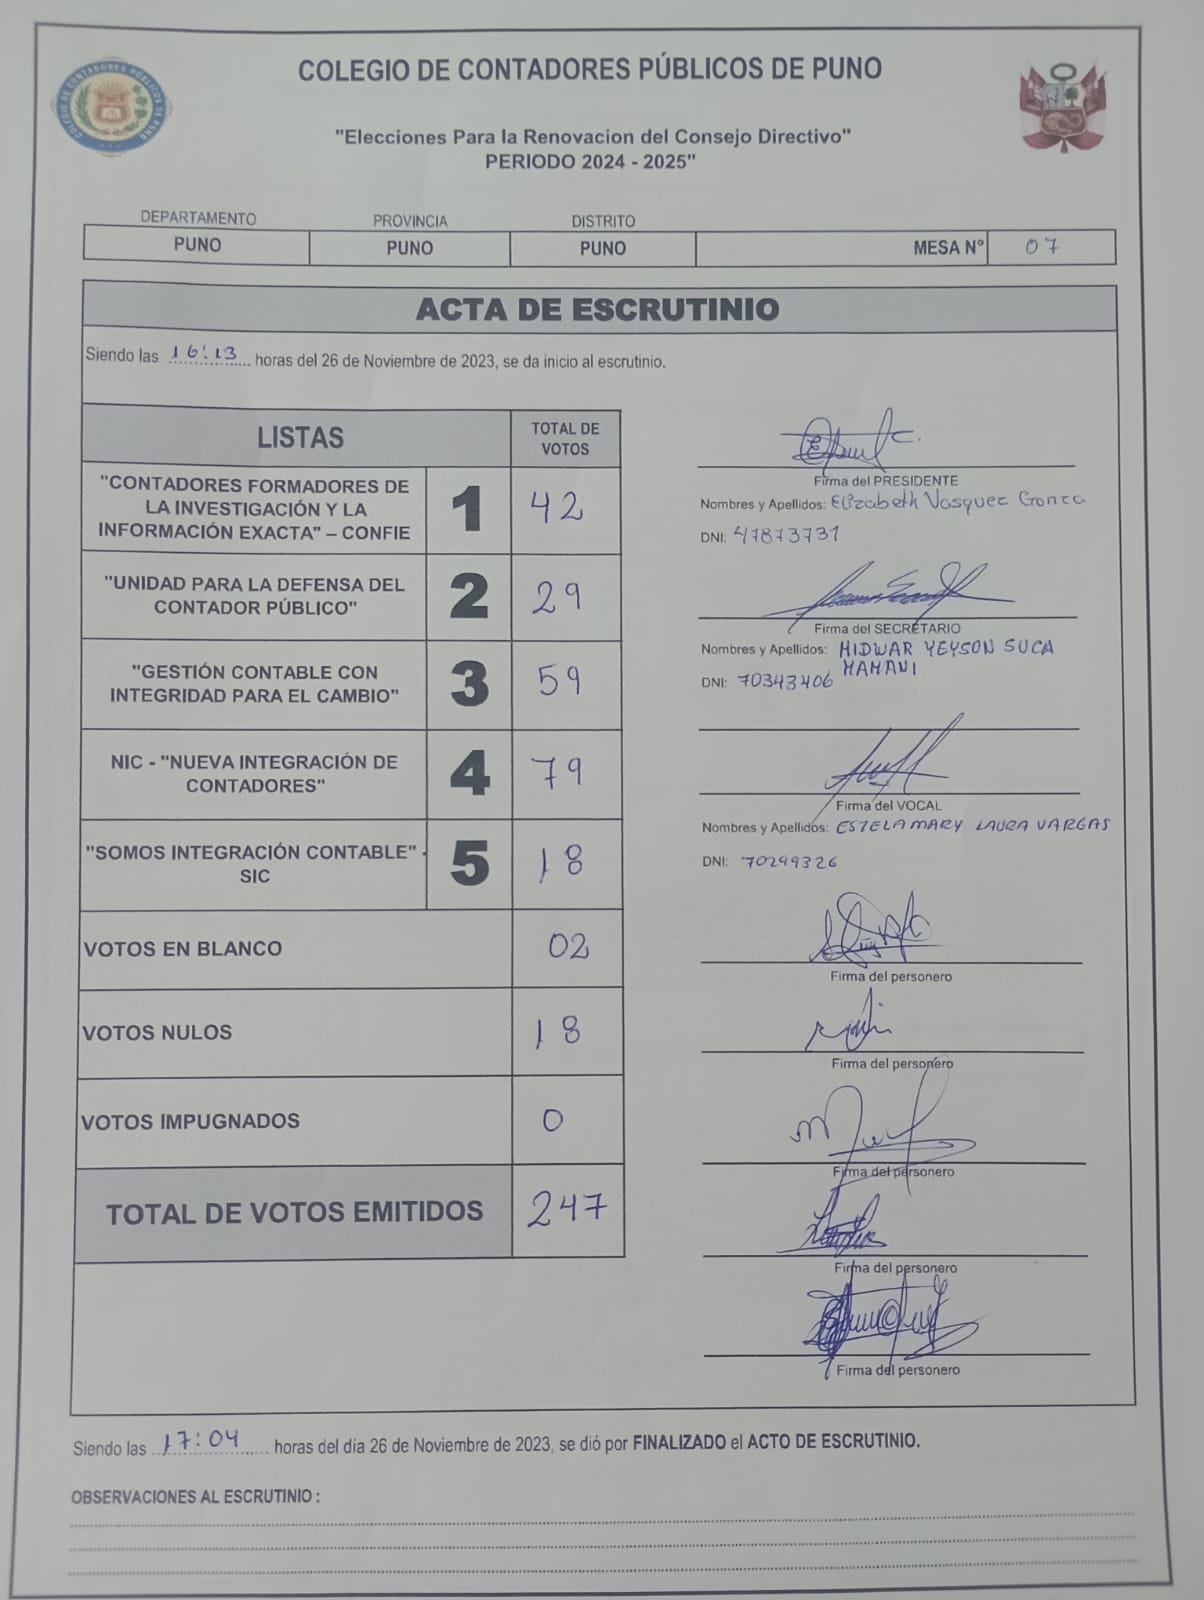 COLEGIO DE CONTADORES PÚBLICOS DE PUNO
"Elecciones Para la Renovacion del Consejo Directivo"
PERIODO 2024 - 2025"
DEPARTAMENTO PROVINCIA DISTRITO
PUNO PUNO PUNO MESA N° 07
ACTA DE ESCRUTINIO
Siendo las 16:13 horas del 26 de Noviembre de 2023, se da inicio al escrutinio.
LISTAS TOTAL DE VOTOS
"CONTADORES FORMADORES DE
LA INVESTIGACIÓN Y LA
INFORMACIÓN EXACTA" – CONFIE
1 42
"UNIDAD PARA LA DEFENSA DEL
CONTADOR PÚBLICO"
2 29
"GESTIÓN CONTABLE CON
INTEGRIDAD PARA EL CAMBIO"
3 59
NIC - "NUEVA INTEGRACIÓN DE
CONTADORES"
4 79
"SOMOS INTEGRACIÓN CONTABLE" -
SIC
5 18
VOTOS EN BLANCO 02
VOTOS NULOS 18
VOTOS IMPUGNADOS 0
TOTAL DE VOTOS EMITIDOS 247
Firma del PRESIDENTE
Nombres y Apellidos: Elizabeth Vasquez Gonza
DNI: 47873731
Firma del SECRETARIO
Nombres y Apellidos: MIDWAR YEYSON SUCA
MAMANI
DNI: 70343406
Firma del VOCAL
Nombres y Apellidos: ESTELA MARY LAURA VARGAS
DNI: 70299326
Firma del personero
Firma del personero
Firma del personero
Firma del personero
Firma del personero
Siendo las 17:04 horas del día 26 de Noviembre de 2023, se dió por FINALIZADO el ACTO DE ESCRUTINIO.
OBSERVACIONES AL ESCRUTINIO :